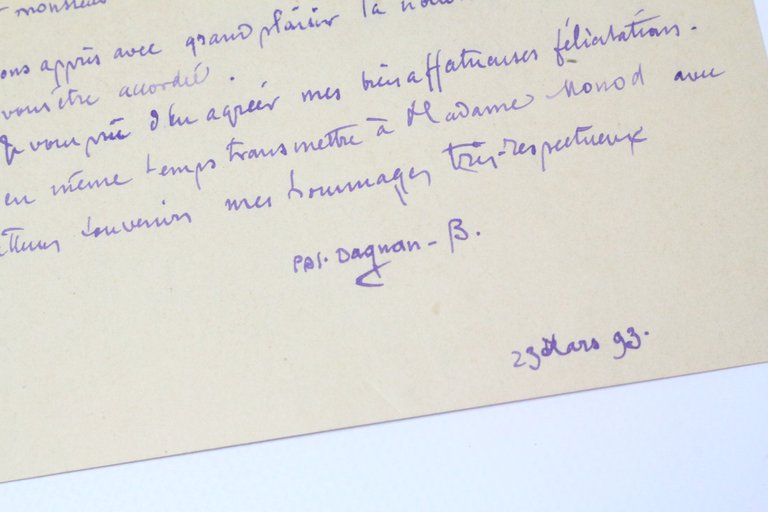 monsieur
ons appris avec grand plaisir la nou
vous être accordée.
Je vous prie d'en agréer mes bien affectueuses félicitations.
en même temps transmettre à Madame Monod avec
souvenirs mes hommages très-respectueux
PAS. Dagnan-B.
23 Mars 93.